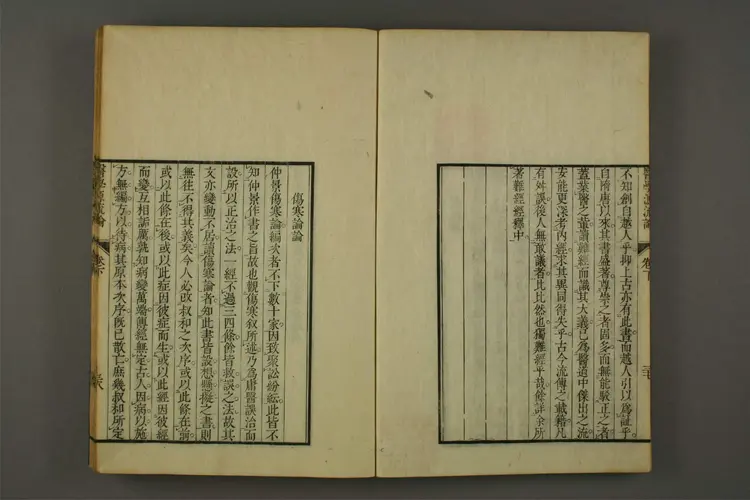 不知創自越人乎抑上古亦有此書而越人引以爲証乎
自隋唐以來其書盛著尊崇之者固多而無能駁正之者
蓋業醫之輩讀難經而識其大義已爲醫道中傑出之流
安能更深考內經求其異同得失乎古今流傳之載籍凡
有舛誤後人無敢議者比比然也獨難經乎哉餘詳余所
著難經經釋中
傷寒論論
仲景傷寒論編次者不下數十家因致聚訟紛紜此皆不
知仲景作書之旨故也觀傷寒叙所述乃爲庸醫誤治而
設所以正治之法一經不過三四條餘皆救誤之法故其
文亦變動不居讀傷寒論者知此書皆設想懸擬之書則
無往不得其義矣今人必改叔和之次序或以此條在前
或以此條在後或以此症因彼症而生或以此經因彼經
而變互相詬厲孰知病變萬端傳經無定古人因病以施
方無編方以待病其原本次序既已散亡庶幾叔和所定
醫學源流論
卷下